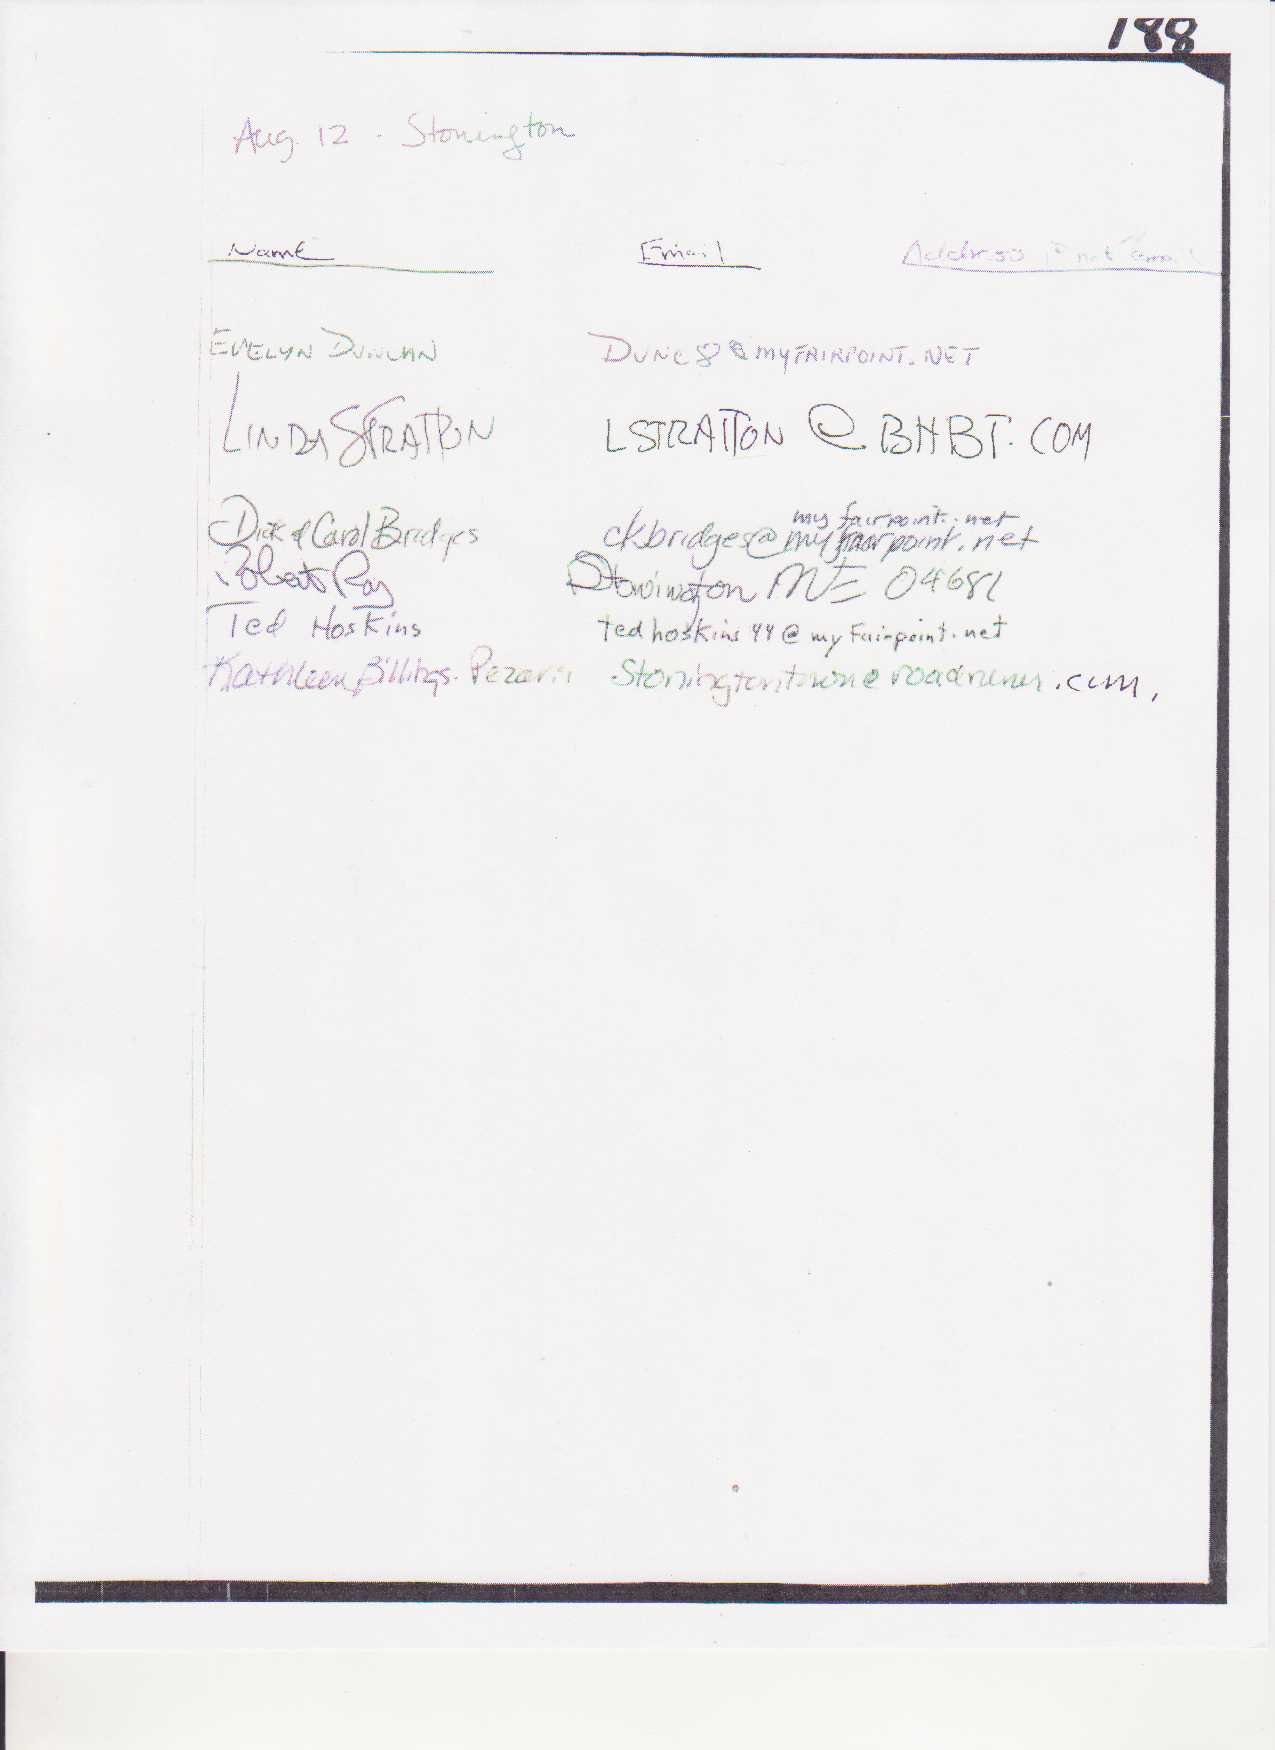 188
Aug. 12 - Stonington
Name Email Address if not Email
EVELYN DUNCAN DUNC8@MYFAIRPOINT.NET
LINDA STRATTON LSTRATTON @ BHBT.COM
my fairpoint.net
Dick & Carol Bridges ckbridges@myfairpoint.net
Robert Ray Stonington ME 04681
Ted Hoskins tedhoskins44@myfairpoint.net
Kathleen Billings-Pezaris Stoningtontown@roadrunner.com.